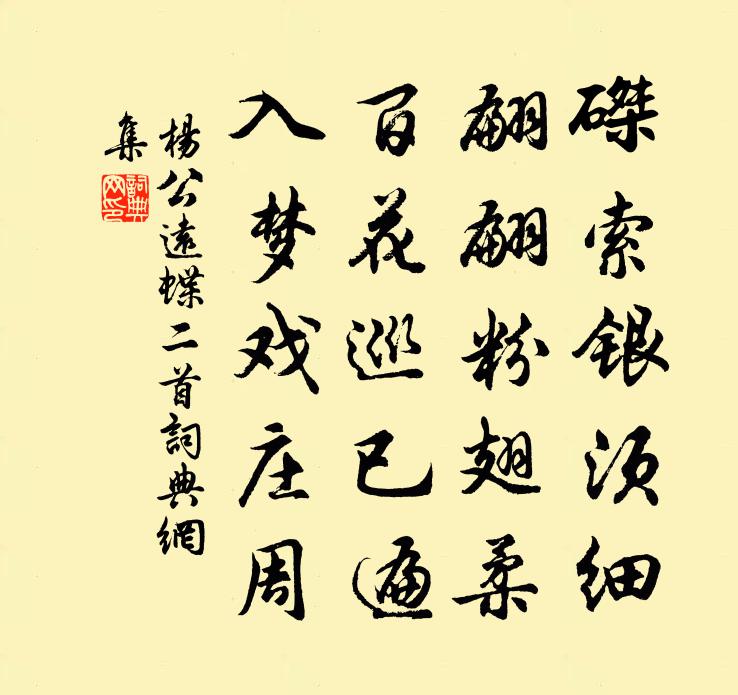 磔索银须细
翩翩粉翅柔
百花巡已遍
入梦戏庄周
楊公遠蝶二首詞典網
集
詞典
网印